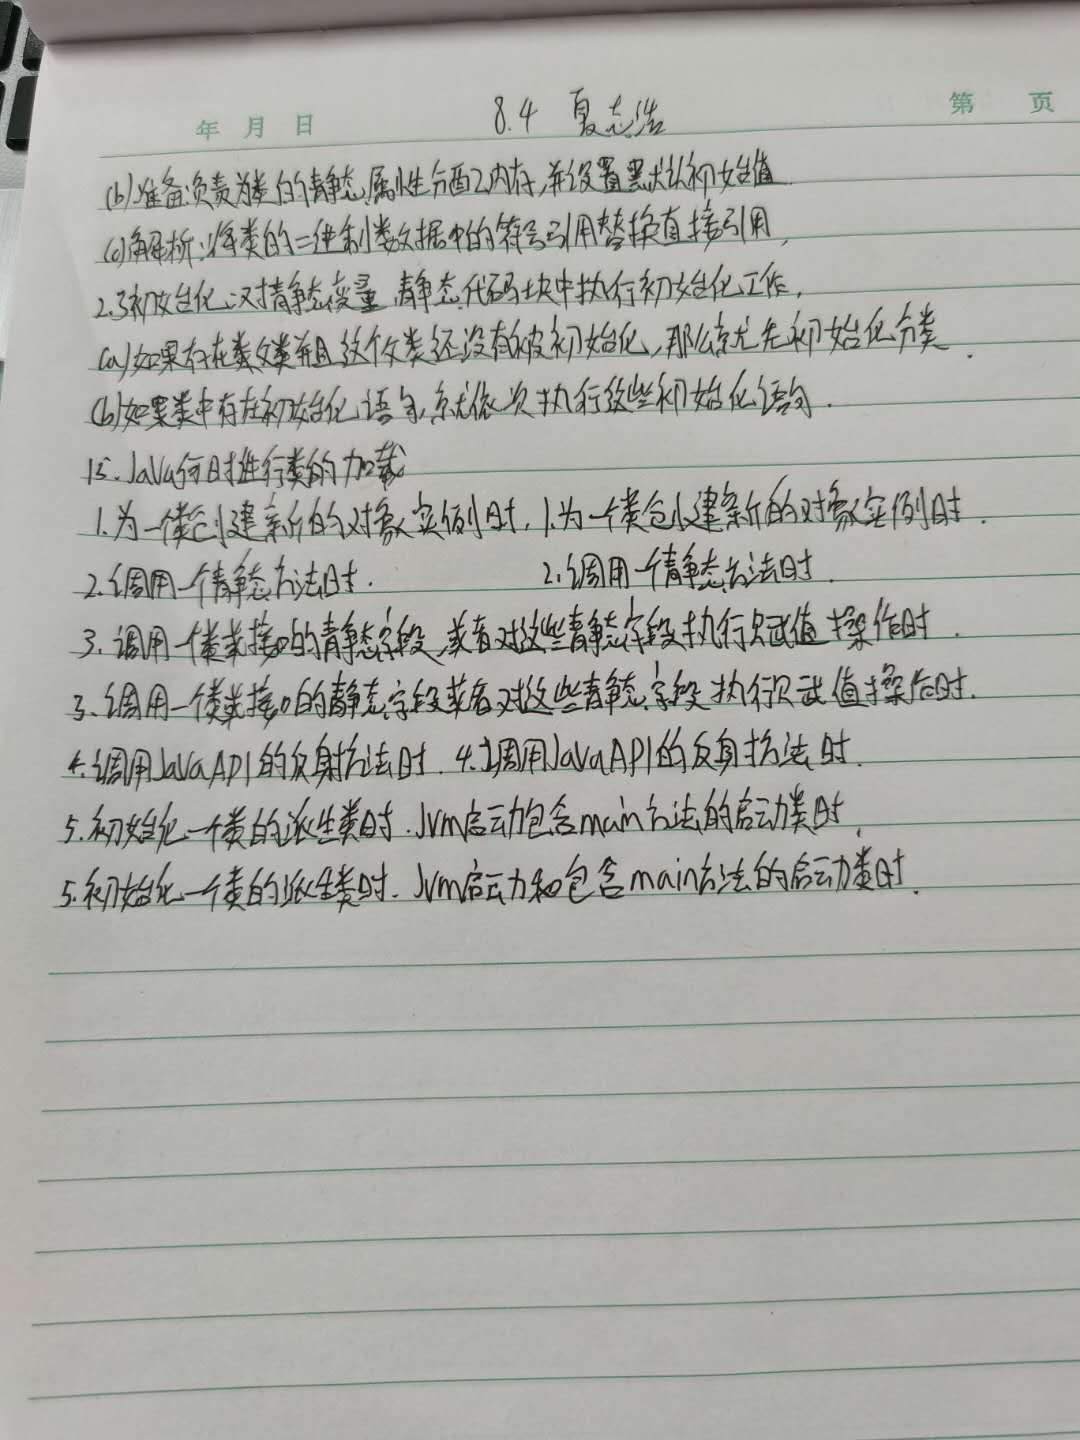 年 月 日 8.4 夏志浩 第 页
(b)准备:负责为类的静态属性分配内存,并设置默认初始值
(c)解析:将类的二进制数据中的符号引用替换直接引用,
2.3初始化:对静态变量,静态代码块中执行初始化工作,
(a)如果存在类父类并且这个父类还没有被初始化,那么就先初始化父类.
(b)如果类中存在初始化语句,就依次执行这些初始化语句.
15.Java何时进行类的加载
1.为一个类创建新的对象实例时,1.为一个类创建新的对象实例时.
2.调用一个静态方法时. 2.调用一个静态方法时.
3.调用一个类或接口的静态字段,或者对这些静态字段执行赋值操作时.
3.调用一个类或接口的静态字段或者对这些静态字段执行赋值操作时.
4.调用JavaAPI的反射方法时. 4.调用JavaAPI的反射方法时.
5.初始化一个类的派生类时.Jvm启动包含main方法的启动类时,
5.初始化一个类的派生类时.Jvm启动和包含main方法的启动类时.